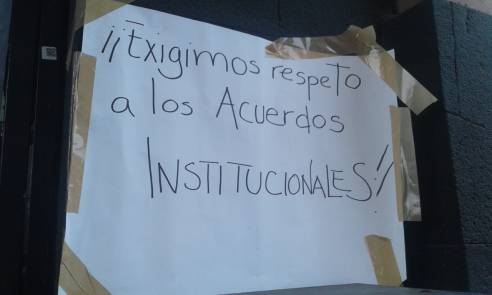 ¡¡Exigimos respeto
a los Acuerdos
INSTITUCIONALES!!